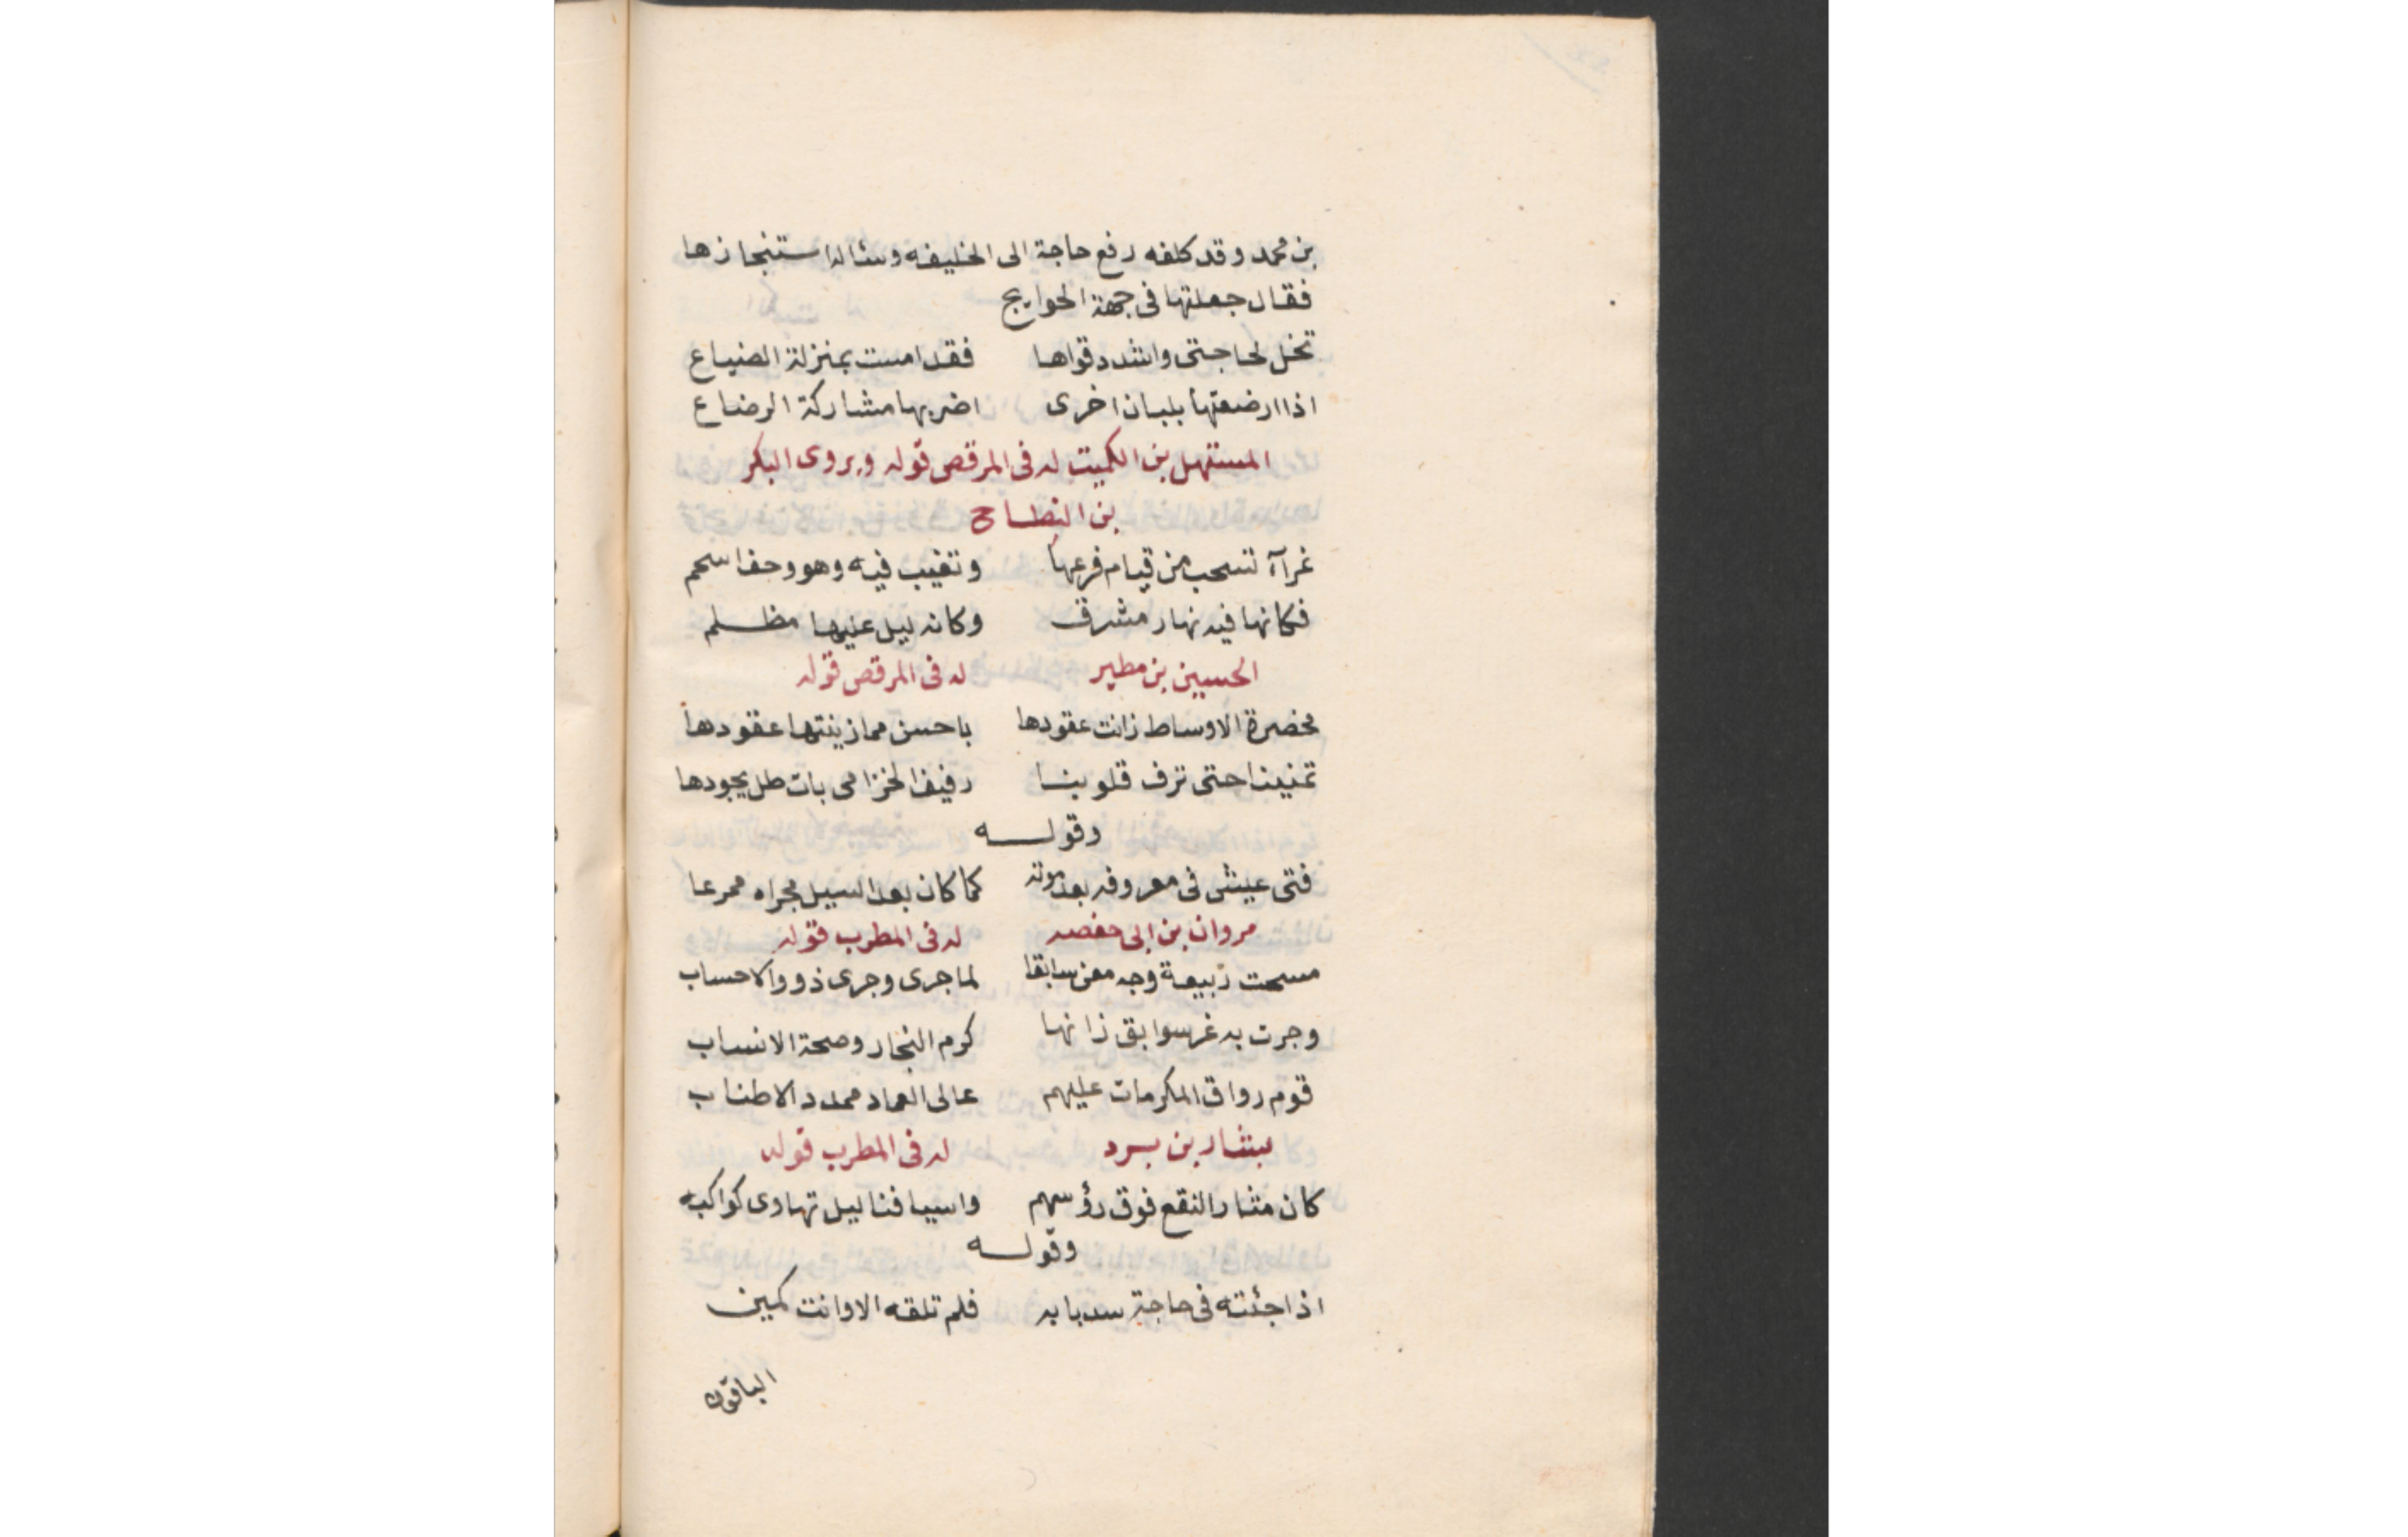 بن محمد وقد كلفه رفع حاجة الى الخليفه وسئاله استنجازها
فقال جعلتها فى جهة الحوايج
تخل لحاجتى واشدد قواها فقد امست بمنزلة الضياع
اذا ارضعتها بلبان اخرى اضر بها مشاركة الرضاع
المستهل بن الكميت له فى المرقص قوله ويروى البكر
بن النطاح
غرآء تسحب من قيام فرعها وتغيب فيه وهو وحف اسحم
فكانها فيه نهار مشرق وكانه ليل عليها مظلم
الحسين بن مطير له فى المرقص قوله
مخصرة الاوساط زانت عقودها باحسن مما زينتها عقودها
تمنيننا حتى ترف قلوبنا رفيف الخزامى بات طل يجودها
وقوله
فتى عيش فى معروفه بعد موته كما كان بعد السيل مجراه ممرعا
مروان بن ابى حفصه له فى المطرب قوله
مسحت ربيعة وجه معن سابقا لما جرى وجرى ذووا الاحساب
وجرت به غر سوابق زانها كرم النجار وصحة الانساب
قوم رواق المكرمات عليهم عالى العماد ممدد الاطناب
بشار بن برد له فى المطرب قوله
كان مثار النقع فوق رؤسهم واسيافنا ليل تهاوى كواكبه
وقوله
اذا جئته فى حاجة سد بابه فلم تلقه الا وانت كمين